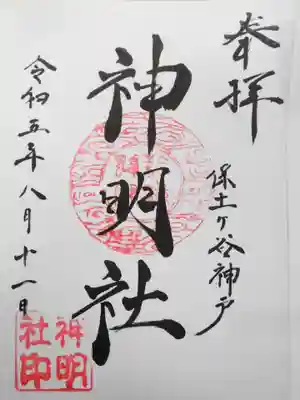 奉拝
保土ヶ谷神戸
神明社
令和五年八月十一日
神明
社印